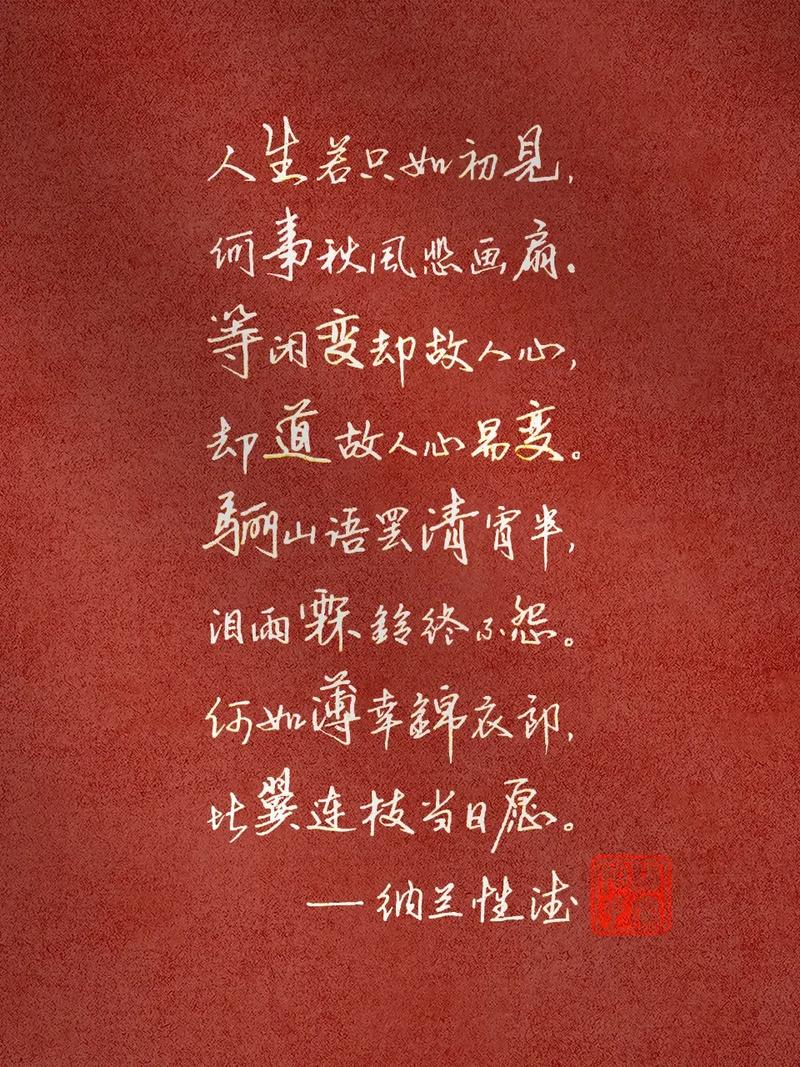 人生若只如初見,
何事秋风悲画扇.
等闲变却故人心,
却道故人心易变。
骊山语罢清宵半,
泪雨霖鈴终不怨。
何如薄幸錦衣郎,
比翼连枝当日愿。
—纳兰性德